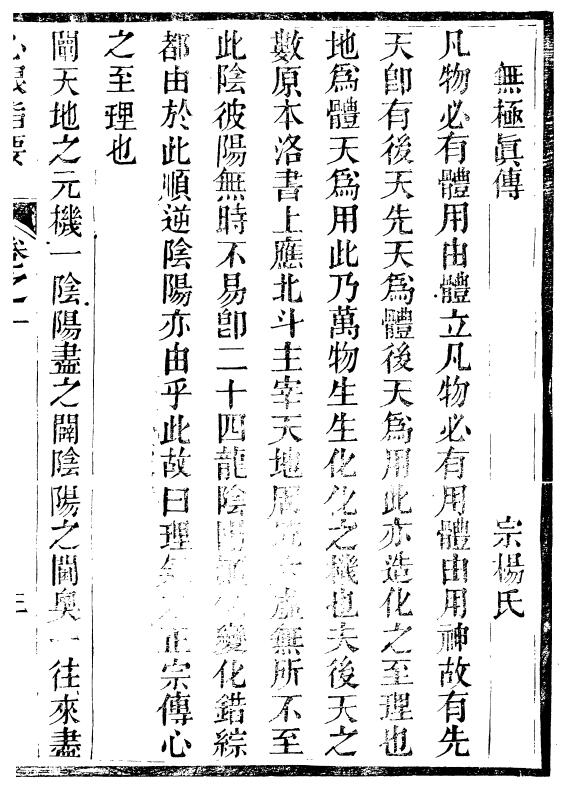 無極眞傳
宗楊氏
凡物必有體用由體立凡物必有用體由用神故有先
天卽有後天先天爲體後天爲用此亦造化之至理也
地爲體天爲用此乃萬物生生化化之機也夫後天之
數原本洛書上應北斗主宰天地周虛無所不至
此陰彼陽無時不易卽二十四龍陰陽變化錯綜
都由於此順逆陰陽亦由乎此故曰理正宗傳心
之至理也
闡天地之元機一陰陽盡之闢陰陽之閫奧一往來盡
心眼指要
卷之一
三